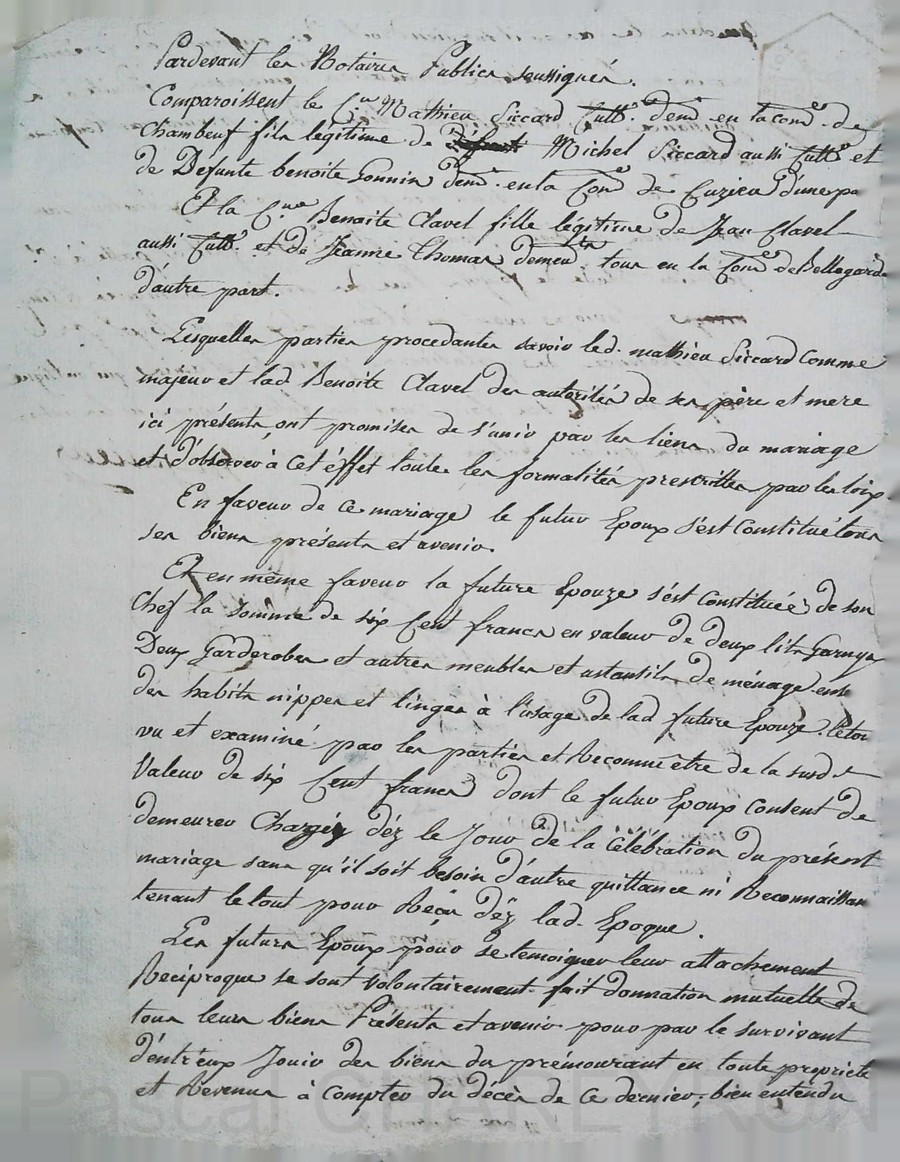 Pardevant les Notaires Publics soussignés.
Comparoissent le C.en Mathieu Siccard Cultr. demt. en la come. de
Chambeuf fils légitime de Michel Siccard aussi Cultr. et
de Defunte benoite Gonnin demt. en la Come. de Cuzieu d'une pa
Et la C.ne Benoite Clavel fille légitime de Jean Clavel
aussi Cultr. et de Jeanne Thomas demeurts tous en la Come. de Bellegarde
d'autre part.
Lesquelles parties procedantes savoir led. mathieu Siccard Comme
majeur et lad. Benoite Clavel des autorités de ses père et mere
ici présents, ont promises de s'unir par les liens du mariage
et d'observer à Cet éffet toutes les formalités prescrittes par les loix
En faveur de ce mariage le futur Epoux s'est Constitué tous
ses biens présents et avenir.
Et en même faveur la future Epouze s'est Constituée de son
Chef la somme de six Cent francs en valeur de deux lits Garnys
Deux Garderobes et autres meubles et ustansils de ménage ens
des habits nippes et linges à l'usage de lad future Epouze. le tou
vu et examiné par les parties et Reconnu etre de la susd.
Valeur de six Cent francs dont le futur Epoux consent de
demeurer Chargé déz le Jour de la Célébration du présent
mariage sans qu'il soit besoin d'autre quittance ni Reconnaissan
tenant le tout pour Reçu déz lad. Epoque.
Les futurs Epoux pour se temoigner leur attachement
Reciproque se sont volontairement fait donnation mutuelle de
tous leurs biens Présents et avenir pour par le survivant
d'entr'eux Jouir des biens du prémourant en toute propriete
et Revenus à Compter du décès de Ce dernier, bien entendu
Pascal CHAREYRON